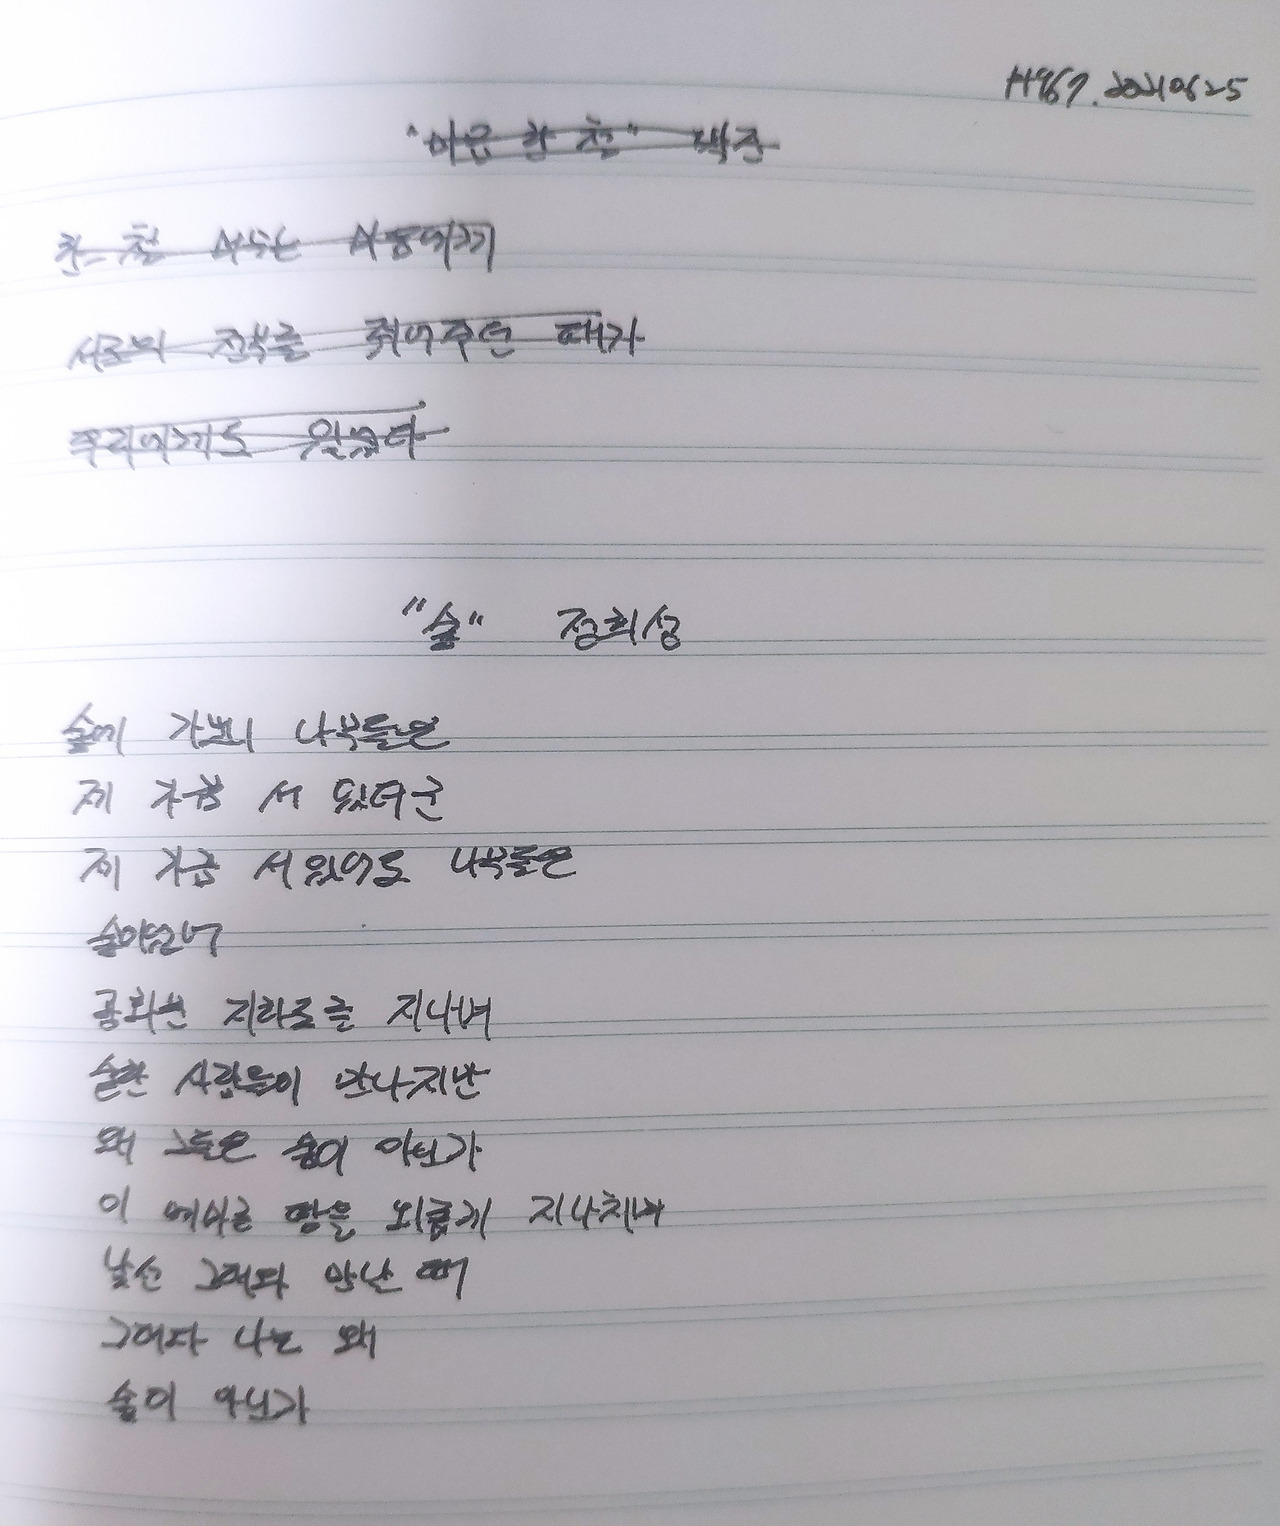 H967. 20210625
"마음 한 철" 박준
한 철 사는 사랑이기
서로의 전부를 쥐여주던 때가
우리에게도 있었다
"숲" 정희성
숲에 가보니 나무들은
제 가끔 서 있더군
제 가끔 서 있어도 나무들은
숲이었어
광화문 지하도를 지나며
숱한 사람들이 만나지만
왜 그들은 숲이 아닌가
이 메마른 땅을 외롭게 지나치며
낯선 그대와 만날 때
그대와 나는 왜
숲이 아닌가